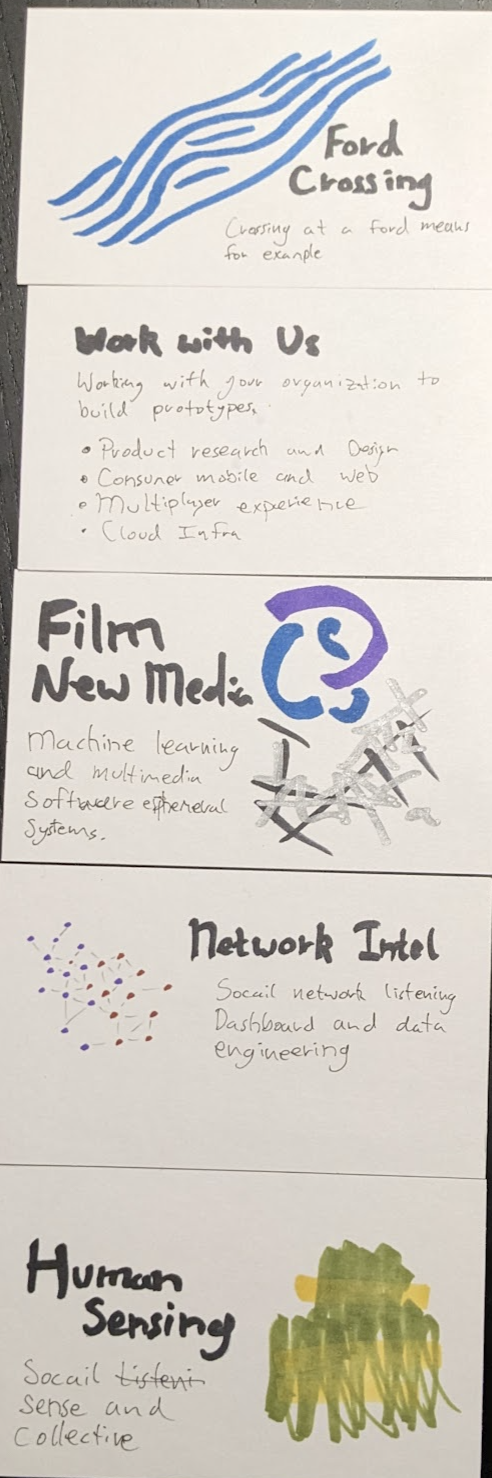 Ford
Crossing
Crossing at a ford means
for example
Work with Us
Working with your organization to
build prototypes.
• Product research and Design
• Consumer mobile and web
• Multiplayer experience
• Cloud Infra
Film
New Media
Machine learning
and multimedia
Software ephemeral
Systems.
Network Intel
Socail network listening
Dashboard and data
engineering
Human
Sensing
Socail Listeni
Sense and
Collective